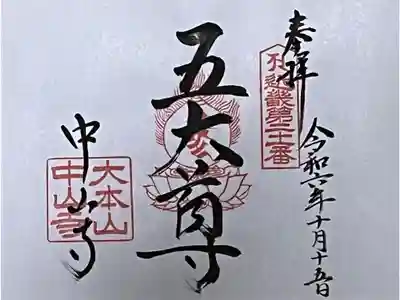 奉拝
令和六年十月十五日
五大尊
中山寺
大本山
中山寺